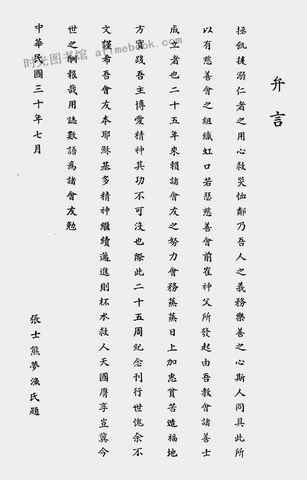 弁言
拯飢援溺仁者之用心救災恤鄰乃吾人之義務樂善之心斯人同具此所
以有慈善會之組織虹口若瑟慈善會前崔神父所發起由吾教會諸善士
成立者也二十五年來賴諸會友之努力會務蒸蒸日上加惠貧苦造福地
方實踐吾主博愛精神其功不可沒也際此二十五周紀念刊行世愧余不
文謹希吾會友本耶穌基多精神繼續邁進則杯水救人天國賡享豈冀今
世之酬報哉用誌數語為諸會友勉
中華民國三十年七月
張士熊夢漁氏題
时光图书馆 atimebook.com